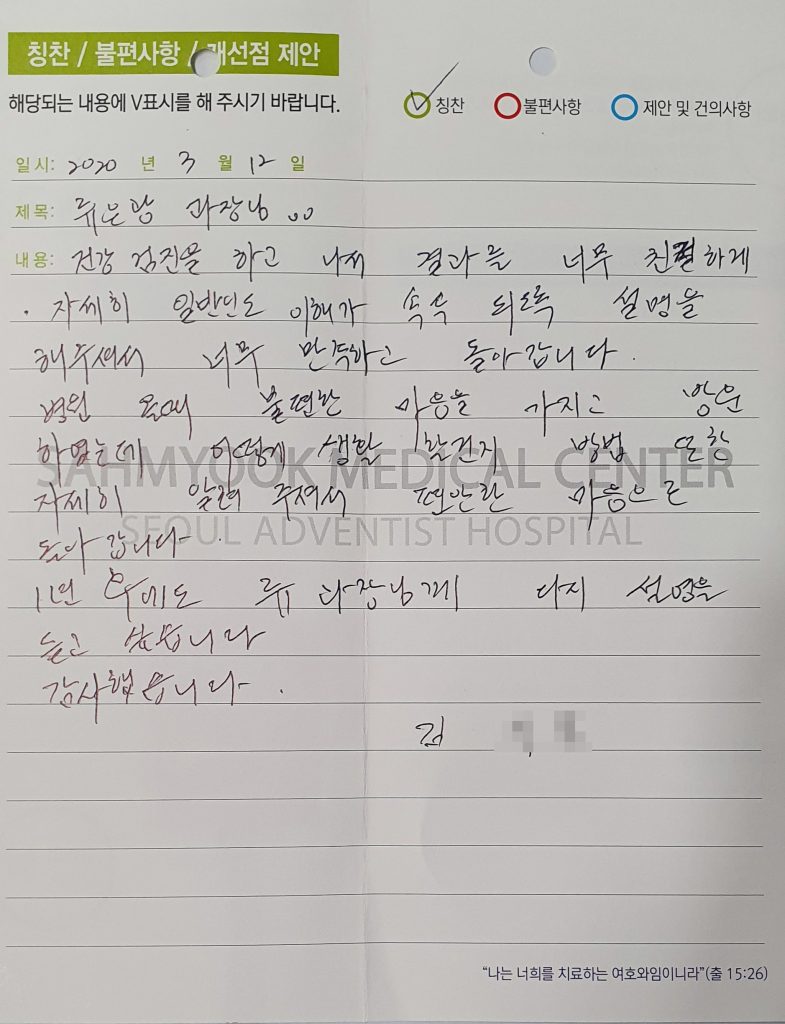 칭찬 / 불편사항 / 개선점 제안
해당되는 내용에 V표시를 해 주시기 바랍니다.
칭찬 불편사항 제안 및 건의사항
일시: 2020 년 3 월 12 일
제목: 류은광 과장님
내용: 건강 검진을 하고 나서 결과를 너무 친절하게
자세히 일반인도 이해가 속속 되도록 설명을
해주셔서 너무 만족하고 돌아갑니다.
병원 올때 불편한 마음을 가지고 방문
하였는데 어떻게 생활 할건지 방법 또한
SAHMYOOK MEDICAL CENTER
자세히 알려 주셔서 편안한 마음으로
SEOUL ADVENTIST HOSPITAL
돌아 갑니다.
1년 후에도 류 과장님께 다시 설명을
듣고 싶습니다
감사했습니다.
김
“나는 너희를 치료하는 여호와임이니라”(출 15:26)